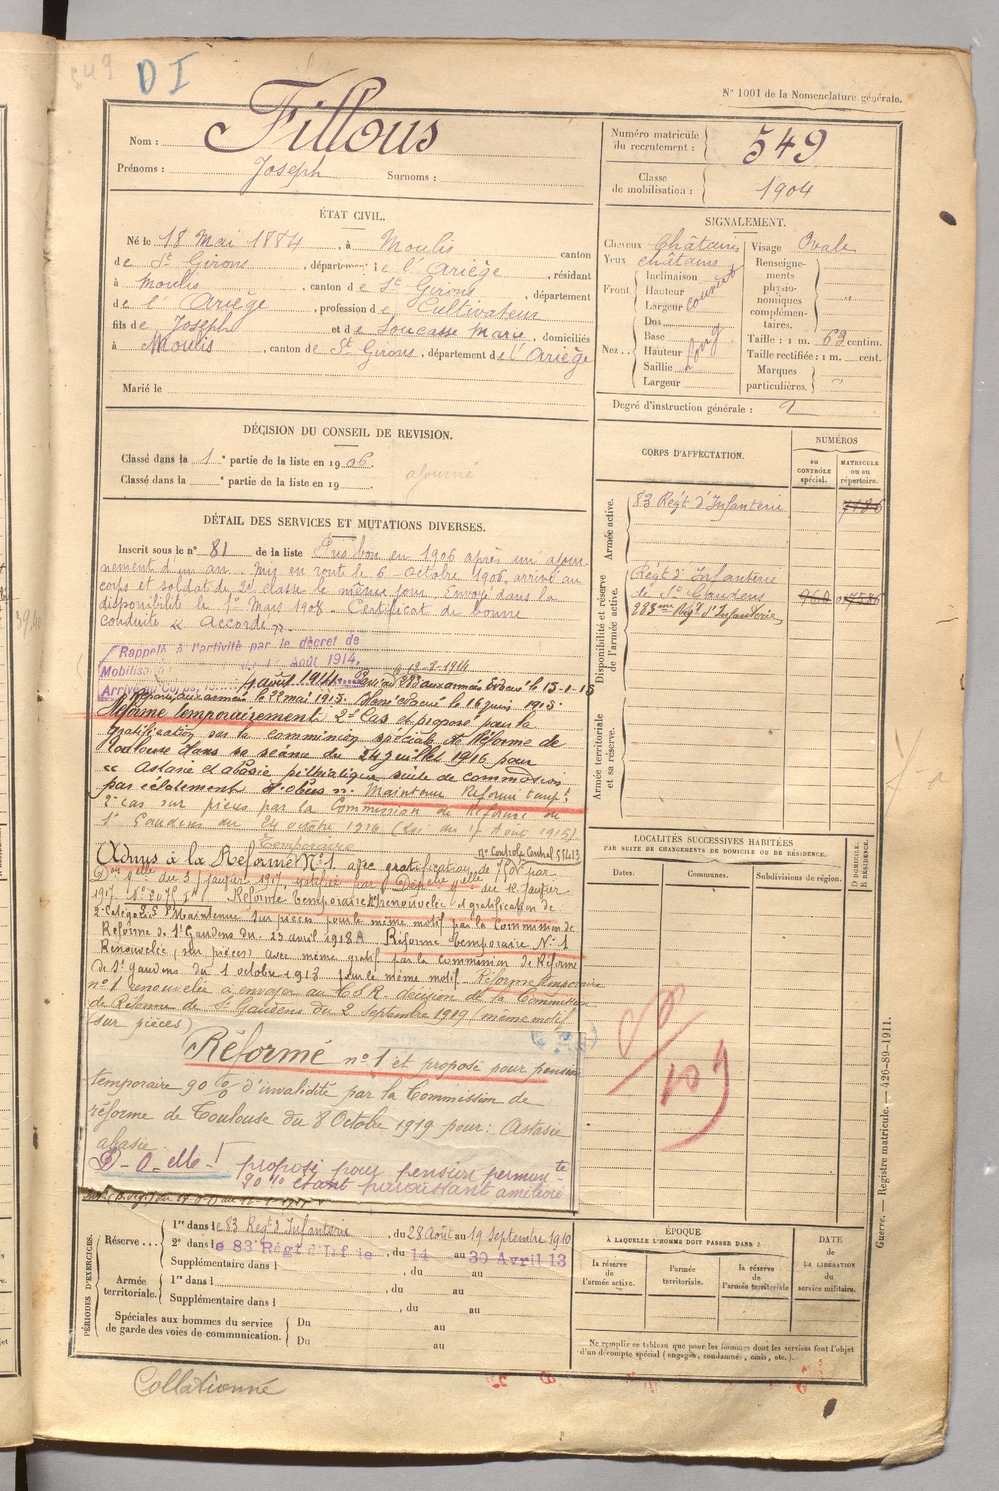 549
D I
N° 1001 de la Nomenclature générale.
Nom : Fillous
Prénoms : Joseph Surnoms :
Numéro matricule du recrutement : 549
Classe de mobilisation : 1904
ÉTAT CIVIL.
Né le 18 Mai 1884, à Moulis canton
de St Girons, département de l'Ariège, résidant
à Moulis, canton de St Girons, département
de l'Ariège, profession de Cultivateur
fils de Joseph et de Soucasse Marie, domiciliés
à Moulis, canton de St Girons, département de l'Ariège
Marié le
SIGNALEMENT.
Cheveux châtains Visage Ovale
Yeux châtains
Front. Inclinaison Hauteur Largeur
Nez.. Dos Base Hauteur Saillie Largeur long
Renseignements physionomiques complémentaires. "
Taille : 1 m. 63 centim.
Taille rectifiée : 1 m. cent.
Marques particulières. "
Degré d'instruction générale : 2
DÉCISION DU CONSEIL DE REVISION.
Classé dans la 1e partie de la liste en 1906.
Classé dans la e partie de la liste en 19
ajourné
CORPS D'AFFECTATION.
NUMÉROS
au CONTRÔLE spécial.
MATRICULE ou au répertoire.
Armée active.
83 Régt d'Infanterie
Disponibilité et réserve de l'armée active.
Régt d'Infanterie
de St Gaudens 968
283eme Régt d'Infanterie
Armée territoriale et sa réserve.
DÉTAIL DES SERVICES ET MUTATIONS DIVERSES.
Inscrit sous le n° 81 de la liste Pris bon en 1906 après un ajour-
nement d'un an. Mis en route le 6 Octobre 1906, arrivé au
corps et soldat de 2e classe le même jour. Envoyé dans la
disponibilité le 1er Mars 1908. Certificat de bonne
conduite « Accordé ».
Rappelé à l'activité par le décret de
Mobilisation août 1914.
le 19-2-1914
Arrivé au Corps, le août 1914 aux armées Evacué le 15-1-15
Reparti aux armées le 22 mai 1915. evacué le 16 juin 1915.
Réformé temporairement 2e Cas et proposé pour la
gratification par la commission spéciale de Réforme de
Toulouse dans sa séance du 24 juillet 1916 pour
« Astasie et abasie pithiatique suite de commotion
par éclatement d'obus ». Maintenu Réformé tempre
2e cas sur pièces par la Commission de Réforme de
St Gaudens du 24 octobre 1916
Temporaire
n° Control Central
Admis à la Réforme N° 1 avec gratification de par
Don Melle du 31 janvier 1917, notifiée par Dépêche Melle du 12 janvier
1917. Réforme temporaire renouvelée et gratification de
2e Catégorie Maintenue sur pièces pour le même motif par la Commission de
Réforme de St Gaudens du 23 avril 1918 Réforme temporaire N° 1
Renouvelée (sur pièces) avec même gratif par la Commission de Réforme
de St Gaudens du 1 octobre 1918 pour le même motif. Réforme temporaire
n° 1 renouvelée à envoyer au C.S.R. décision de la Commission
de Réforme de St Gaudens du 2 septembre 1919 (même motif
(sur pièces)
Réformé n° 1 et proposé pour pension
temporaire 90 % d'invalidité par la Commission de
réforme de Toulouse du 8 Octobre 1919 pour : Astasie
abasie.
proposé pour pension permante
90 % étant paraissant amélioré
LOCALITÉS SUCCESSIVES HABITÉES
PAR SUITE DE CHANGEMENTS DE DOMICILE OU DE RÉSIDENCE.
Dates. Communes. Subdivisions de région. D DOMICILE. R RÉSIDENCE.
PÉRIODES D'EXERCICES.
Réserve... 1re dans le 83 Régt d'Infanterie, du 28 Août au 19 Septembre 1910
2e dans le 83e Régt d'Inf ie, du 14 au 30 Avril 13
Supplémentaire dans l , du au
Armée territoriale. 1re dans l , du au
Supplémentaire dans l , du au
Spéciales aux hommes du service de garde des voies de communication. Du au
Du au
ÉPOQUE
À LAQUELLE L'HOMME DOIT PASSER DANS :
la réserve de l'armée active. l'armée territoriale. la réserve de l'armée territoriale
DATE de LA LIBÉRATION du service militaire.
Ne remplir ce tableau que pour les hommes dont les services font l'objet
d'un décompte spécial (engagés, condamnés, omis, etc.).
Guerre. — Registre matricule. — 426-89-1911.
Collationné